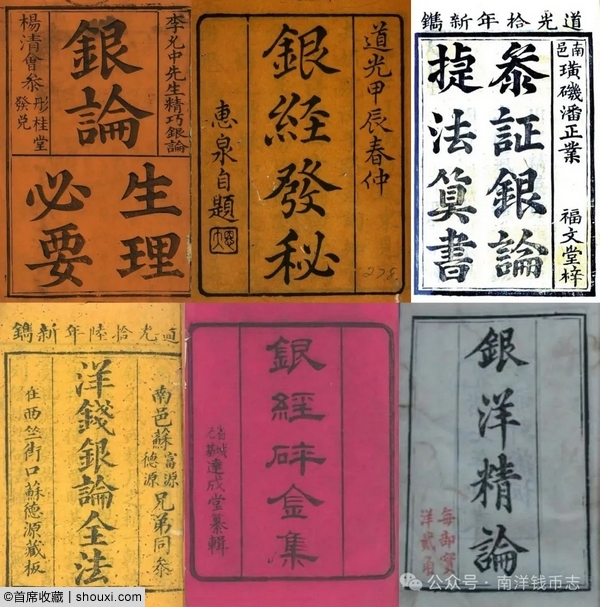 李允中先生精巧銀論
銀論
楊清會叅
彤桂堂
發兌
生理
必要
道光甲辰春仲
銀經發秘
惠泉自題
道光拾年新鐫
南邑
璜磯潘正業
福文堂梓
叅証銀論
捷法算書
道光拾陸年新鐫
南邑蘇富源德源兄弟同叅
洋錢銀論全法
在西竺街口蘇德源藏板
銀經碎金集
省城
達成堂纂輯
銀洋精論
每部實
洋貳角
@首席收藏 | shouxi.com
公众号 · 南洋钱币志